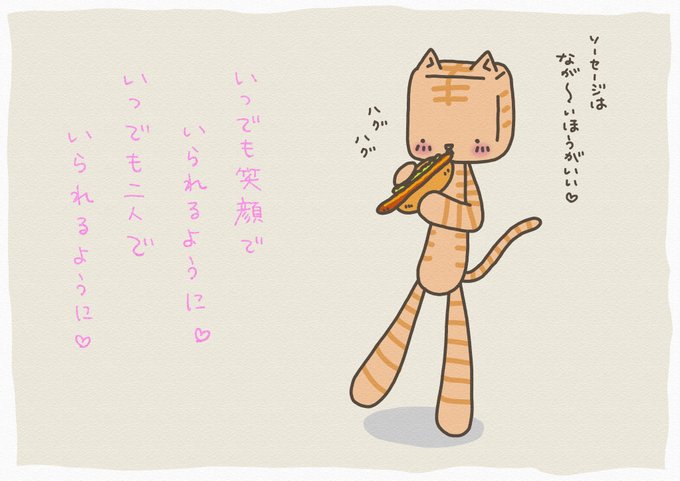 ソーセージは
なが〜いほうがいい♡
ハグ
ハグ
いつでも笑顔で
いられるように♡
いつでも二人で
いられるように♡